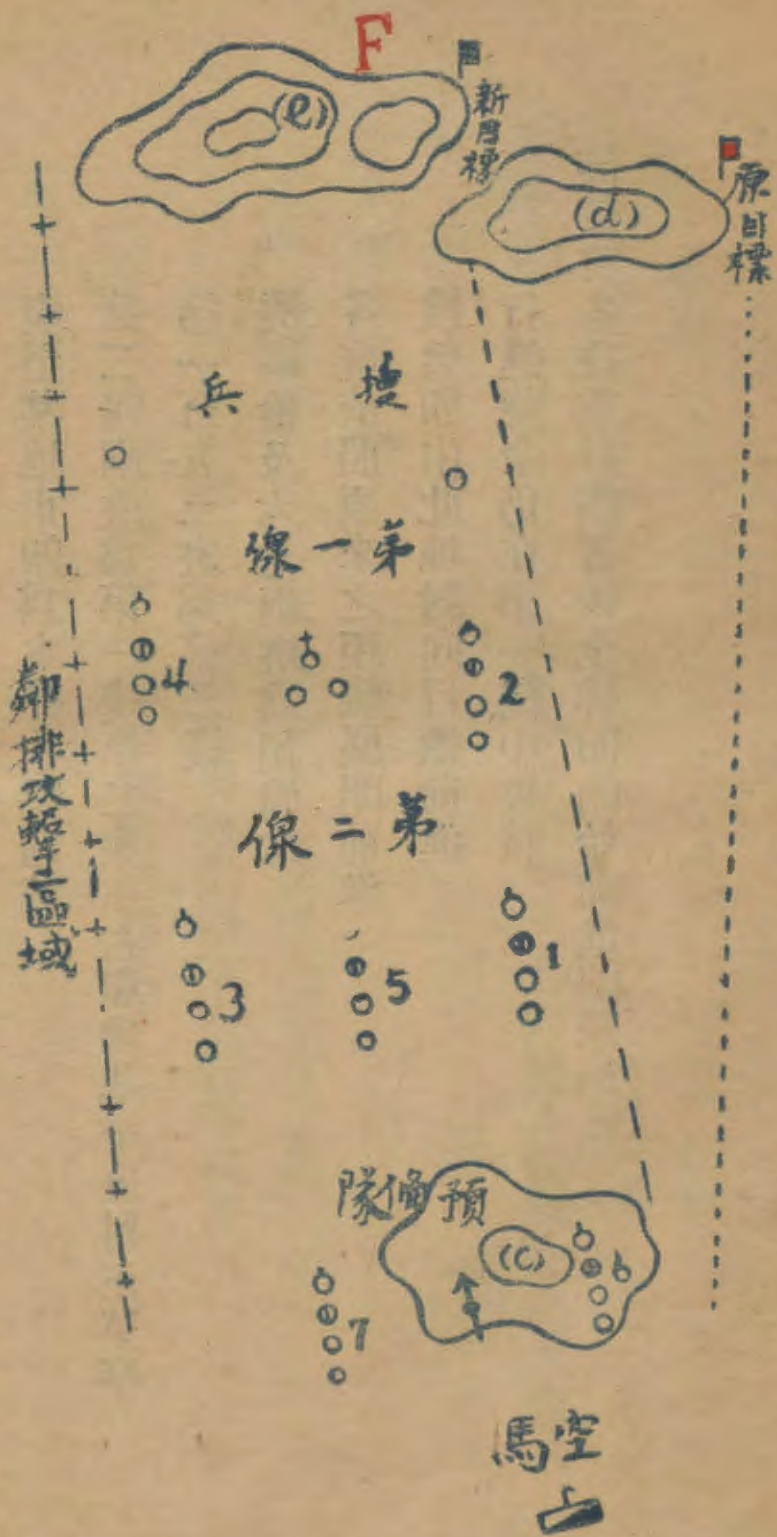 F
(e)
新目標
(d)
原目標
搜兵
第一線
4
2
鄰排攻擊區域
第二線
3
5
1
預備隊
(C)
7
空馬